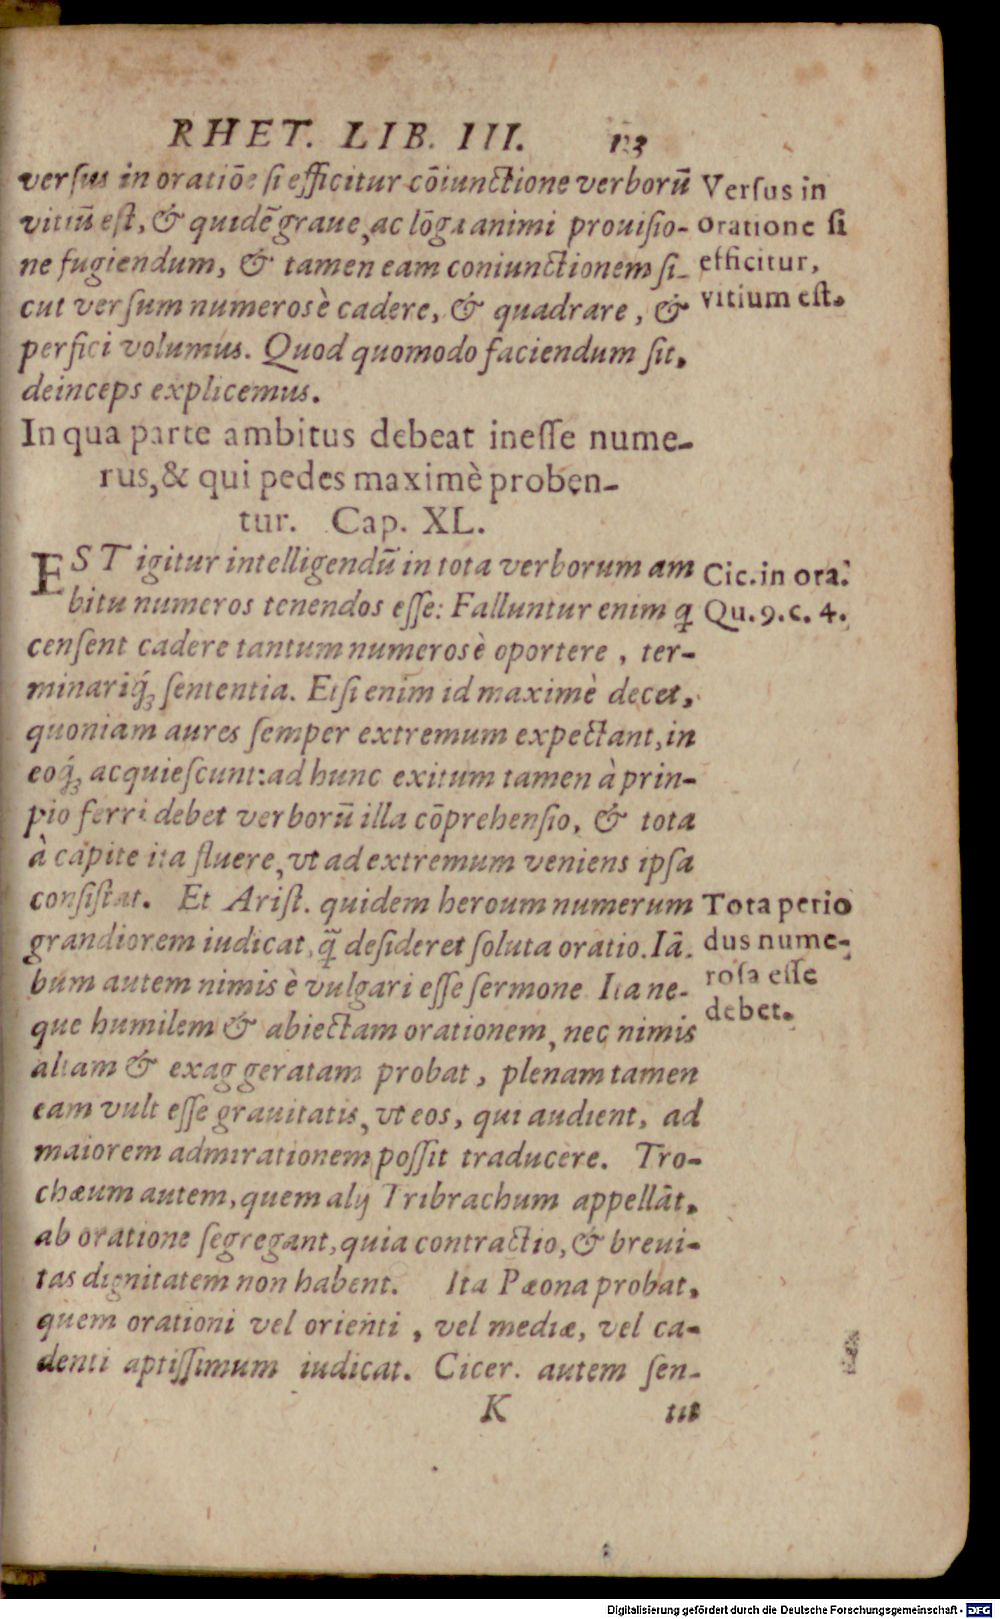 RHET. LIB. III. 113
versus in oratiōe si efficitur cōiunctione verborū
vitiū est, & quidē graue, ac lōga animi prouisio-
ne fugiendum, & tamen eam coniunctionem si-
cut versum numerosè cadere, & quadrare, &
perfici volumus. Quod quomodo faciendum sit,
deinceps explicemus.
Versus in
oratione si
efficitur,
vitium est.
In qua parte ambitus debeat inesse nume-
rus, & qui pedes maximè proben-
tur. Cap. XL.
EST igitur intelligendū in tota verborum am
bitu numeros tenendos esse: Falluntur enim q
censent cadere tantum numerosè oportere, ter-
minariq́; sententia. Etsi enim id maximè decet,
quoniam aures semper extremum expectant, in
eoq́; acquiescunt: ad hunc exitum tamen à prin-
pio ferri debet verborū illa cōprehensio, & tota
à capite ita fluere, vt ad extremum veniens ipsa
consistat. Et Arist. quidem heroum numerum
grandiorem iudicat, q̃ desideret soluta oratio. Iā.
bum autem nimis è vulgari esse sermone Ita ne-
que humilem & abiectam orationem, nec nimis
altam & exaggeratam probat, plenam tamen
eam vult esse grauitatis, vt eos, qui audient, ad
maiorem admirationem possit traducere. Tro-
chæum autem, quem alij Tribrachum appellāt,
ab oratione segregant, quia contractio, & breui-
tas dignitatem non habent. Ita Pæona probat,
quem orationi vel orienti, vel mediæ, vel ca-
denti aptissimum iudicat. Cicer. autem sen-
Cic. in ora.
Qu. 9. c. 4.
Tota perio
dus nume-
rosa esse
debet.
K tit
Digitalisierung gefördert durch die Deutsche Forschungsgemeinschaft - DFG